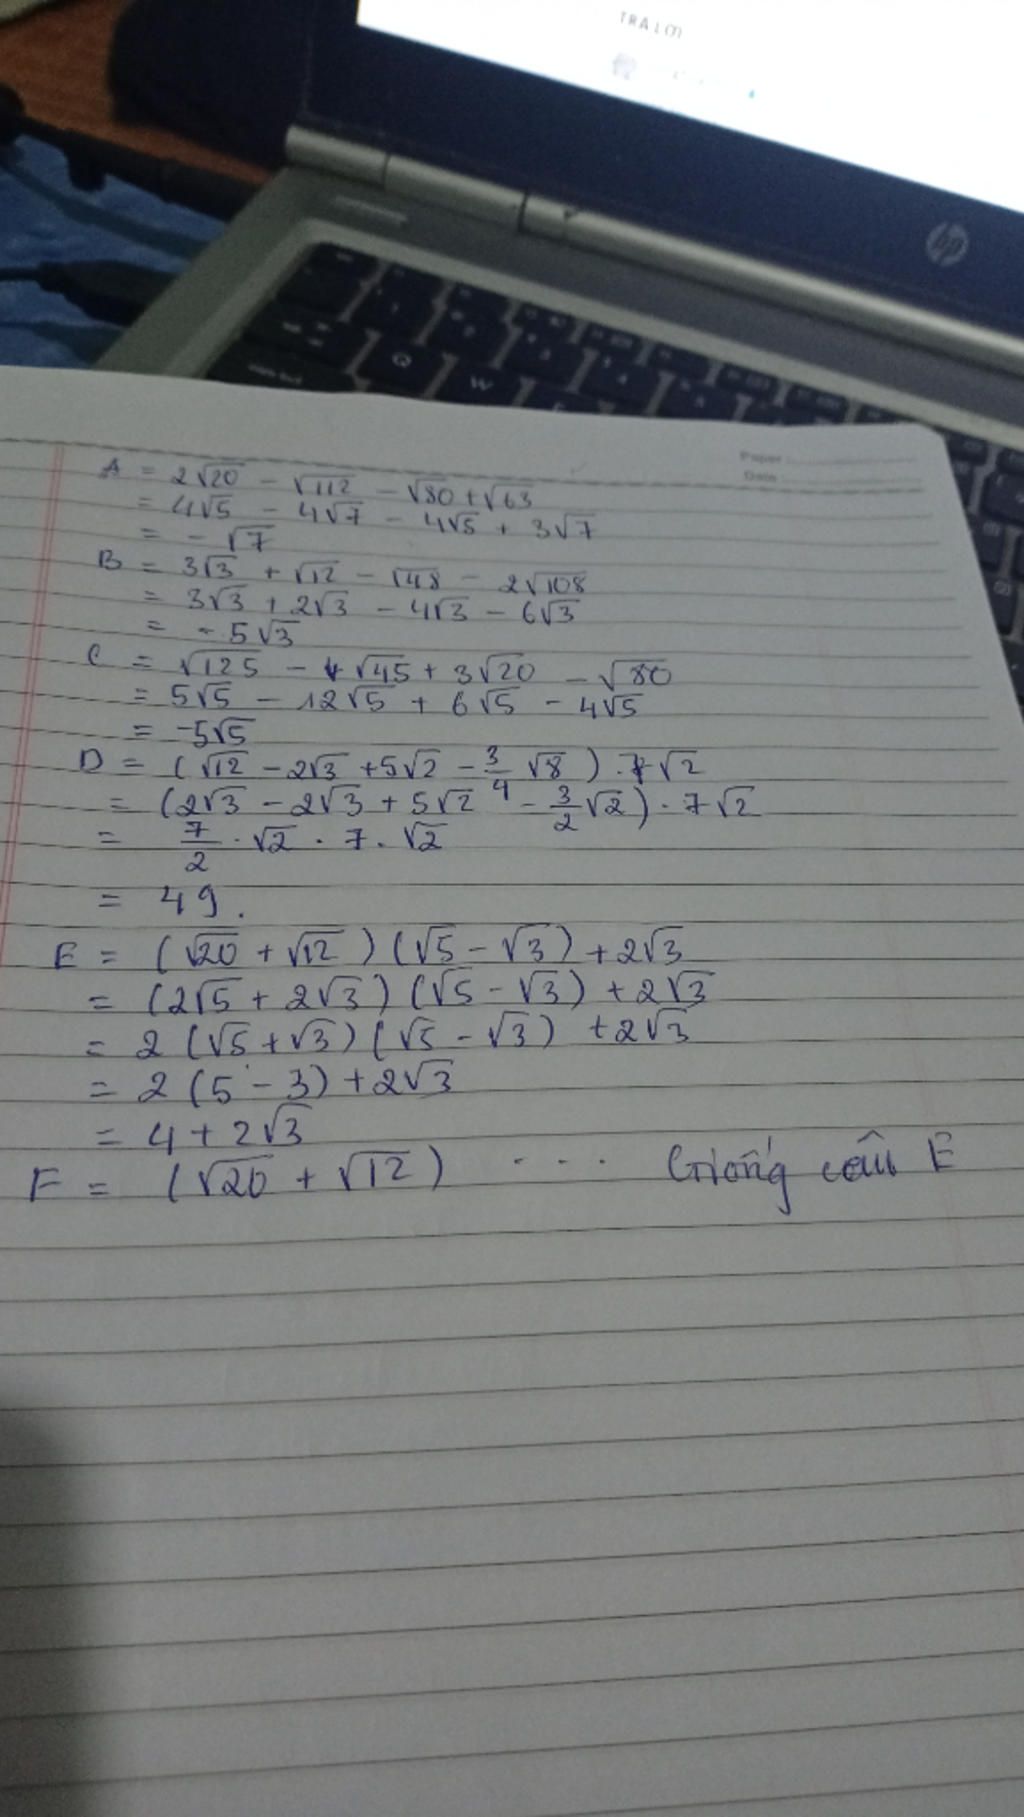 TRẢ LỜI
hp
Q W
Paper
Date
A = 2√20 - √112 - √80 + √63
= 4√5 - 4√7 - 4√5 + 3√7
= - √7
B = 3√3 + √12 - √48 - 2√108
= 3√3 + 2√3 - 4√3 - 6√3
= - 5√3
C = √125 - 4√45 + 3√20 - √80
= 5√5 - 12√5 + 6√5 - 4√5
= -5√5
D = (√12 - 2√3 + 5√2 - 3/4 √8) . 7√2
= (2√3 - 2√3 + 5√2 - 3/2 √2) . 7√2
= 7/2 . √2 . 7 . √2
= 49.
E = (√20 + √12) (√5 - √3) + 2√3
= (2√5 + 2√3) (√5 - √3) + 2√3
= 2 (√5 + √3) (√5 - √3) + 2√3
= 2 (5 - 3) + 2√3
= 4 + 2√3
F = (√20 + √12) . . . Giống câu E